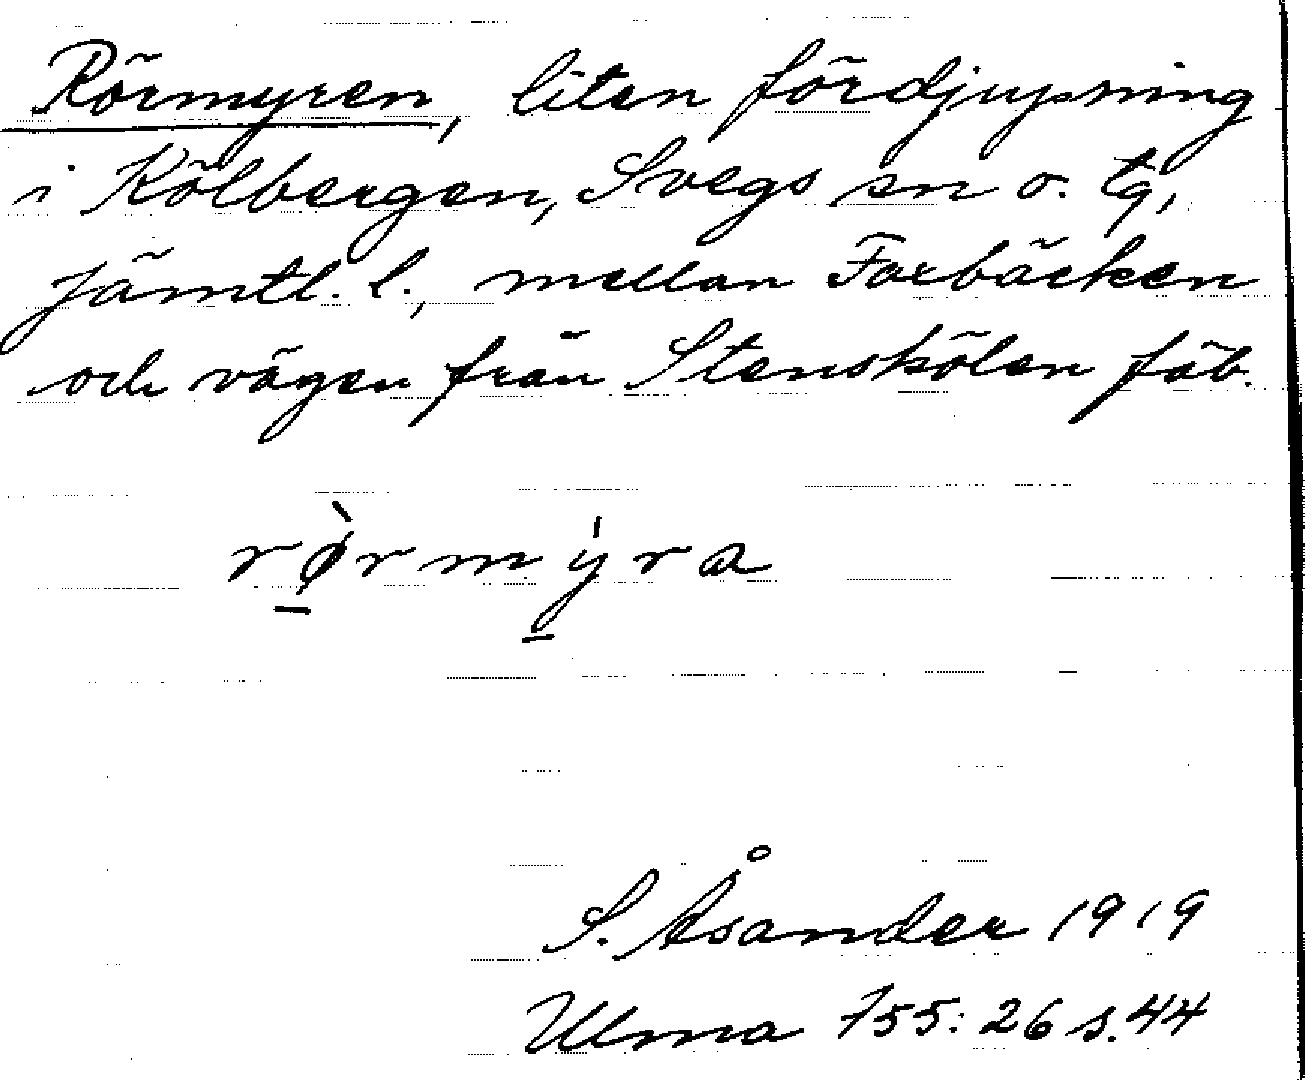 Rörmyren, liten fördjupsning
i Kölbergen, Svegs sn o. tg,
jämtl. l., mellan Foxbäcken
och vägen från Stenskölen fäb.
rø̀rmýra
S. Åsander 1919
Ulma 755: 26 s. 44